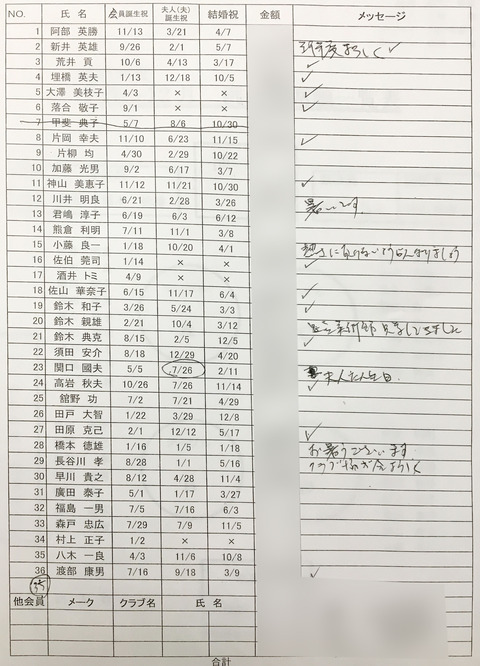 NO. 氏 名 会員誕生祝 夫人(夫)誕生祝 結婚祝 金額 メッセージ
1 阿部 英勝 11/13 3/21 4/7
2 新井 英雄 9/26 2/1 5/7
3 荒井 貢 10/6 4/13 3/17
4 埋橋 英夫 1/13 12/18 10/5
5 大澤 美枝子 4/3 × ×
6 落合 敬子 9/1 × ×
7 甲斐 典子 5/7 8/6 10/30
8 片岡 幸夫 11/10 6/23 11/15
9 片柳 均 4/30 2/29 10/22
10 加藤 光男 9/2 6/17 3/7
11 神山 美恵子 11/12 11/21 10/30
12 川井 明良 6/21 2/28 3/26 暑いです
13 君嶋 淳子 6/19 6/3 6/12
14 熊倉 利明 7/11 11/1 3/8
15 小藤 良一 1/18 10/20 4/1
16 佐伯 莞司 1/14 × ×
17 酒井 トミ 4/9 × ×
18 佐山 華奈子 6/15 11/17 6/4
19 鈴木 和子 3/26 5/24 3/3
20 鈴木 親雄 2/21 10/4 3/12
21 鈴木 典克 8/15 2/5 12/5
22 須田 安介 8/18 12/29 4/20
23 関口 國夫 5/5 7/26 2/11 夫人たん生日
24 高岩 秋夫 10/26 7/26 11/14
25 舘野 功 7/2 7/21 4/29
26 田戸 大智 1/22 3/29 12/8
27 田原 克己 2/1 12/12 5/17
28 橋本 徳雄 1/16 1/5 1/18 お暑うございます
29 長谷川 孝 8/28 1/1 5/16
30 早川 貴之 8/12 4/28 11/4
31 廣田 泰子 5/1 1/17 3/27
32 福島 一男 7/5 7/16 6/3
33 森戸 忠広 7/29 7/9 11/5
34 村上 正子 1/2 × ×
35 八木 一良 4/3 11/6 10/8
36 渡部 康男 7/16 9/18 3/9
35
他会員 メーク クラブ名 氏 名
合計